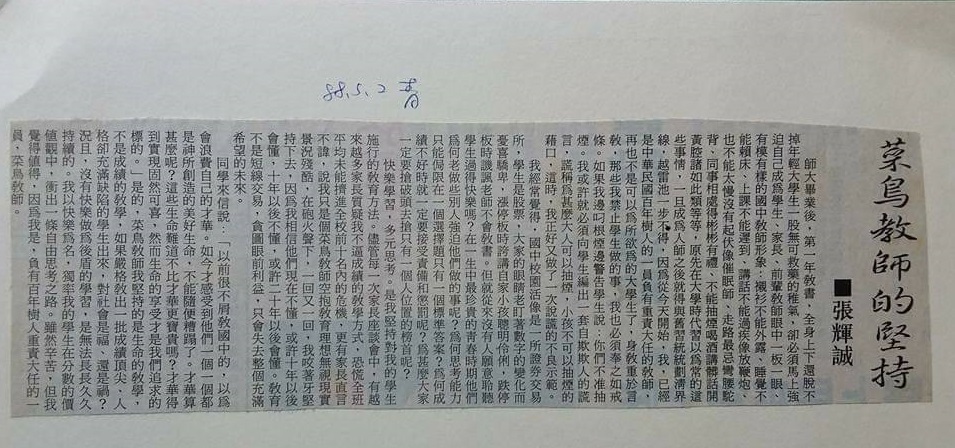 88.5.2 青
菜鳥教師的堅持
■張輝誠
師大畢業後，第一年教書，全身上下還脫不
掉年輕大學生一股無可救藥的稚氣，卻必須馬上強
迫自己成為學生、家長、前輩教師眼中一板一眼、
有模有樣的國中教師形象：襯衫不能外露、睡覺不
能賴床、上課不能遲到、講話不能過疾像放鞭炮、
也不能太慢沒有起伏像催眠師、走路最忌彎腰駝
背、同事相處得彬彬有禮、不能抽煙喝酒講髒話開
黃腔諸如此類等等，原先在大學時代習以為常的某
些事情，一旦成為人師之後就得與舊習統統劃清界
線，越雷池一步不得，因為從今天開始，我，已經
是中華民國百年樹人的一員負有重責大任的教師，
再也不是可以為所欲為的大學生了，身教重於言
教，那些我禁止學生做的事，我也必須奉之如戒
條。如果我邊叼根煙邊警告學生說，你們不准抽
煙。我或許就必須向學生編出一套自欺欺人的謊
言，謊稱為甚麼大人可以抽煙，小孩不可以抽煙的
藉口，這時，我正好又做了一次說謊的不良示範。
我經常覺得，國中校園活像是一所證券交易
所，學生是股票，大家的眼睛老盯著數字的變化而
憂喜驕卑，漲停板時誇講自家小孩聰明伶俐，跌停
板時譏諷老師不會教書。但就從來沒有人願意聆聽
學生過得快樂嗎？在一生中最珍貴的青春時期他們
為何老做些別人強迫他們做的事呢？為何思考能力
只能侷限在一個選擇題只有一個標準答案？為何成
績不好時就一定要接受責備和懲罰呢？為甚麼大家
一定要搶破頭去搶只有一個人位置的榜首呢？
快樂學習，多元思考。是我堅持對我的學生
施行的教育方法。儘管每一次家長座談會中，有越
來越多家長質疑我不逼成績的教學方式，恐慌全班
平均未能擠進全校前十名內的危機，更有家長直言
不諱，說我只是個菜鳥教師空抱教育理想無視現實
景況殘酷，在砲火聲下，一回又一回，我咬著牙堅
持下去，因為我相信他們現在不懂，或許十年以後
會懂，十年以後不懂，或許二十年以後會懂。教育
不是短線交易，貪圖眼前利益，只會失去整個充滿
希望的未來。
同學來信說：「以前很不屑教國中的，以為
會浪費自己的才華。如今才感受到他們一個一個都
是神所創造的美好生命，不能隨便糟蹋了。才華算
甚麼呢？這些生命難道不比才華更寶貴嗎？才華得
到實現固然可喜，然而生命的享受才是我們追求的
標的。」是的，菜鳥教師我堅持的是生命的教學，
不是成績的教學，如果嚴格教出一批成績頂尖、人
格卻充滿缺陷的學生出來，對社會是福、還是禍？
況且，沒有快樂做為後盾的學習，是無法長長久久
持續的。我以快樂為名，獨率我的學生在分數的價
值觀中，衝出一條自由思考之路。雖然辛苦，但我
覺得值得，因為我是，負有百年樹人重責大任的一
員，菜鳥教師。